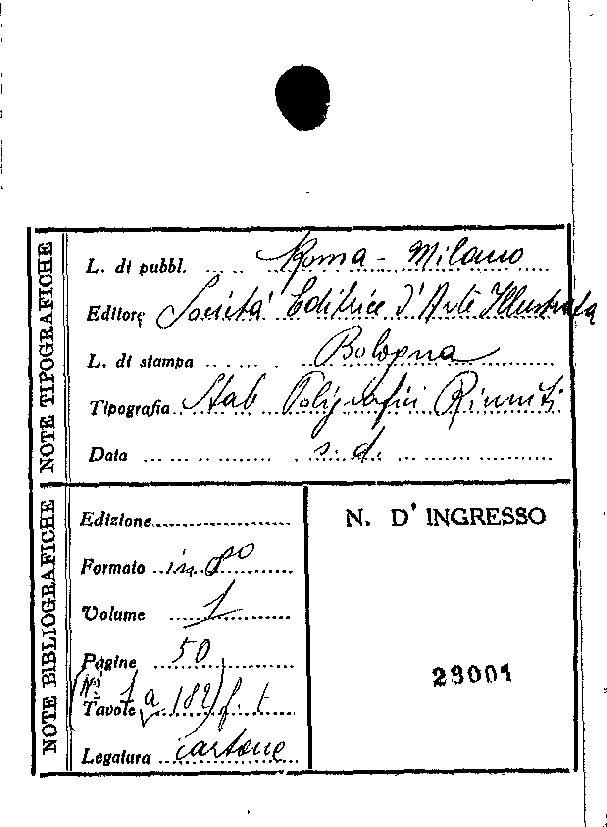 NOTE TIPOGRAFICHE
L. di pubbl. Roma - Milano
Editore Società Editrice d'Arte Illustrata
L. di stampa Bologna
Tipografia Stab Poligrafici Riuniti
Data s. d.
NOTE BIBLIOGRAFICHE
Edizione
Formato in 8º
Volume 1
Pagine 50
(Nº 1 a 182) f. t
Tavole
Legatura cartone
N. D' INGRESSO
29001